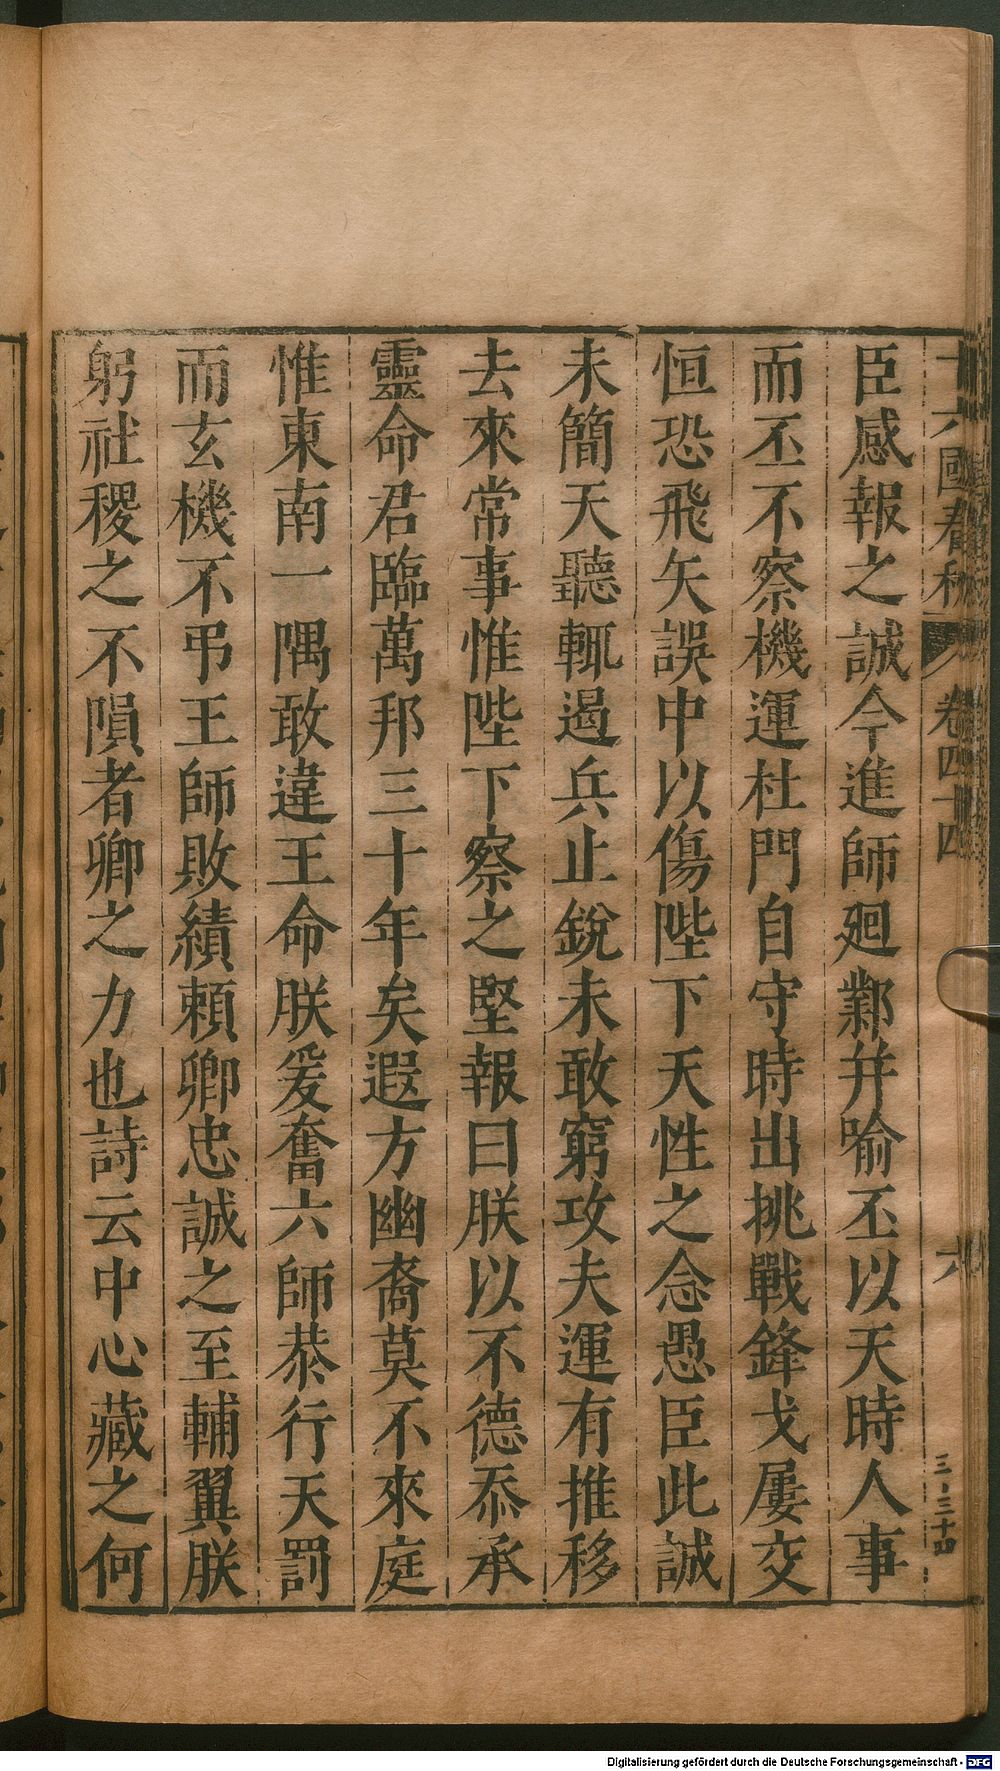 十六國春秋 卷四十四 六
三・三十四
臣感報之誠今進師廻鄴并喻丕以天時人事
而丕不察機運杜門自守時出挑戰鋒戈屢交
恒恐飛矢誤中以傷陛下天性之念愚臣此誠
未簡天聽輒遏兵止銳未敢窮攻夫運有推移
去來常事惟陛下察之堅報曰朕以不德忝承
靈命君臨萬邦三十年矣遐方幽裔莫不來庭
惟東南一隅敢違王命朕爰奮六師恭行天罰
而玄機不弔王師敗績賴卿忠誠之至輔翼朕
躬社稷之不隕者卿之力也詩云中心藏之何
Digitalisierung gefördert durch die Deutsche Forschungsgemeinschaft - DFG